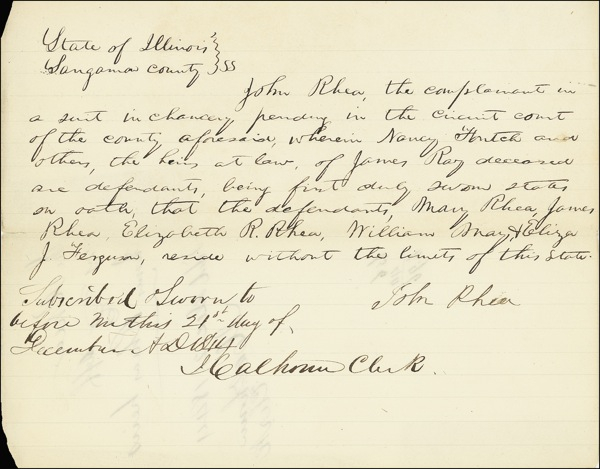 State of Illinois }
Sangamo county } SS
John Rhea, the complainant in
a suit in chancery pending in the circuit court
of the county aforesaid, wherein Nancy and
others, the heirs at law, of James Ray deceased
are defendants, being first duly sworn states
on oath, that the defendants, Mary Rhea, James
Rhea, Elizabeth R. Rhea, William May & Eliza
J. Ferguson, reside without the limits of this State.
Subscribed & Sworn to
John Rhea
before me this 21st day of
December A D 1841
J Calhoun Clerk.